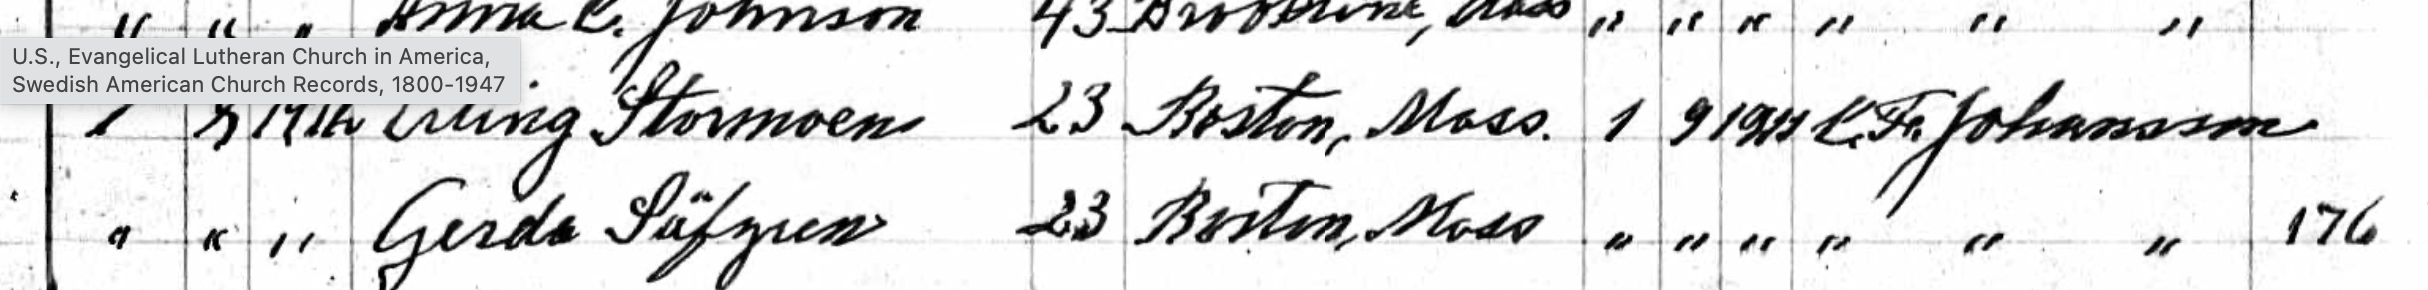 " " " Anna C. Johnson 43 Brookline, Mass " " " " " "
U.S., Evangelical Lutheran Church in America,
Swedish American Church Records, 1800-1947
Erling Stormoen 23 Boston, Mass. 1 9 1911 C. Fr. Johansson
" " " Gerda Säfgren 23 Boston, Mass " " " " " " 176